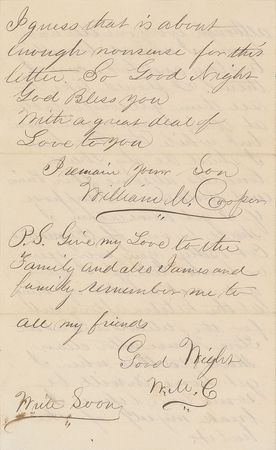 I guess that is about
enough nonsense for this
letter. So Good Night
God Bless you
With a great deal of
Love to you
I remain your Son
William M. Cooper
P.S. Give my Love to the
Family and also James and
family remember me to
all my friends
Good Night
W.M. C
Write Soon